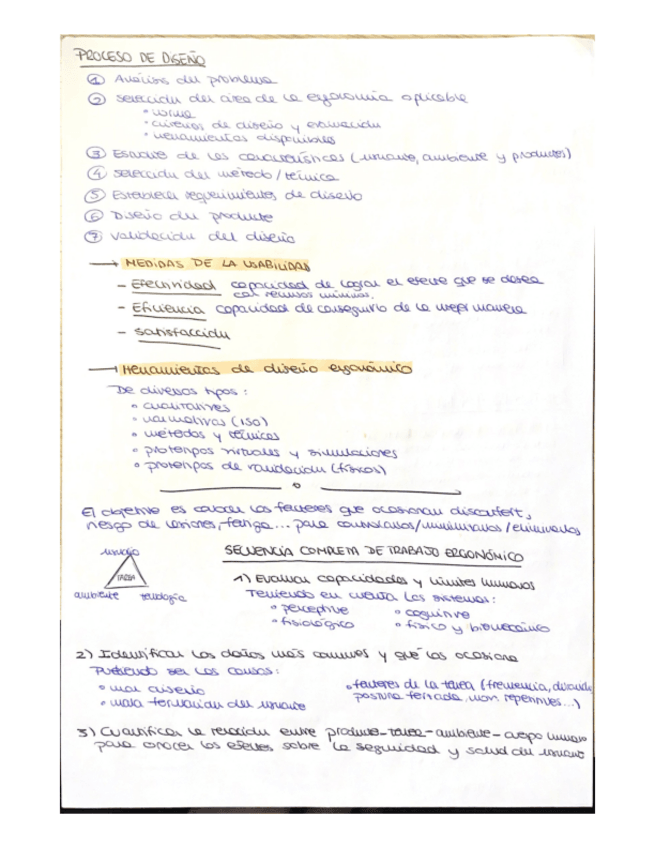 PROCESO DE DISEÑO
① Análisis del problema
② Selección del área de la ergonomía aplicable
• norma
• criterios de diseño y evaluación
• herramientas disponibles
③ Estudio de las características (usuario, ambiente y producto)
④ Selección del método/técnica
⑤ Establecer requerimientos de diseño
⑥ Diseño del producto
⑦ Validación del diseño
→ MEDIDAS DE LA USABILIDAD
- Efectividad capacidad de lograr el efecto que se desea
con recursos mínimos.
- Eficiencia capacidad de conseguirlo de la mejor manera
- Satisfacción
→ Herramientas de diseño ergonómico
De diversos tipos:
• cualitativas
• normativas (ISO)
• métodos y técnicas
• prototipos virtuales y simulaciones
• prototipos de validación (físicos)
El objetivo es conocer los factores que ocasionan discomfort,
riesgo de lesiones, fatiga... para controlarlos/minimizarlos/eliminarlos
usuario
TAREA
ambiente tecnología
SECUENCIA COMPLETA DE TRABAJO ERGONÓMICO
1) Evaluar capacidades y límites humanos
Teniendo en cuenta los sistemas:
• perceptivo • cognitivo
• fisiológico • físico y biomecánico
2) Identificar los daños más comunes y qué los ocasiona
Pudiendo ser las causas:
• mal diseño
• mala formación del usuario
• factores de la tarea (frecuencia, duración,
postura forzada, mov. repetitivos...)
3) Cuantificar la relación entre producto-tarea-ambiente-cuerpo humano
para conocer los efectos sobre la seguridad y salud del usuario